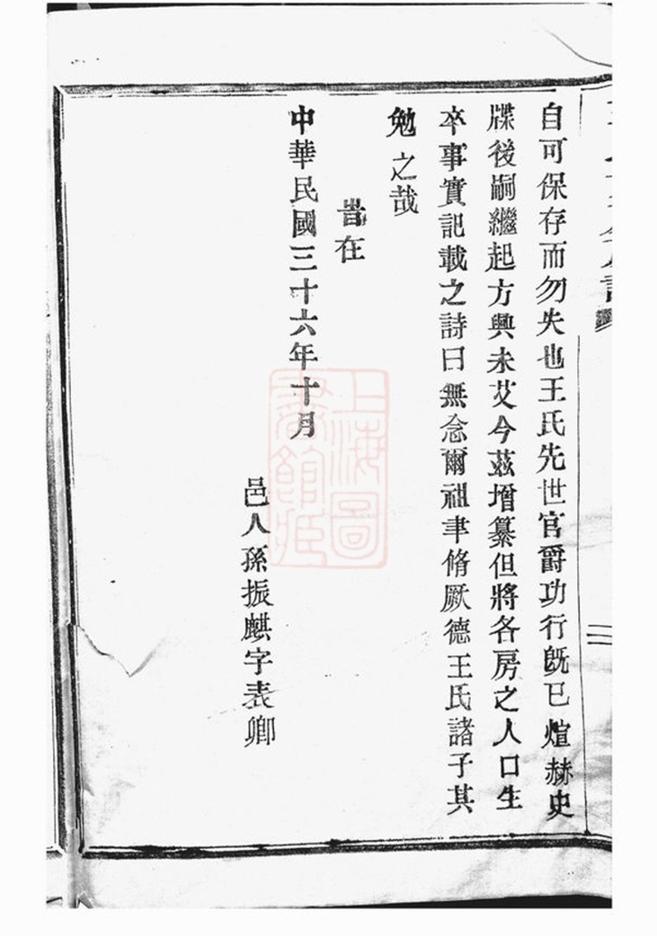 自可保存而勿失也王氏先世官爵功行既已煊赫史
牒後嗣繼起方興未艾今茲增纂但將各房之人口生
卒事實記載之詩曰無念爾祖聿脩厥德王氏諸子其
勉之哉
旹在
中華民國三十六年十月
邑人孫振麒字表卿
上海圖
書館藏
二